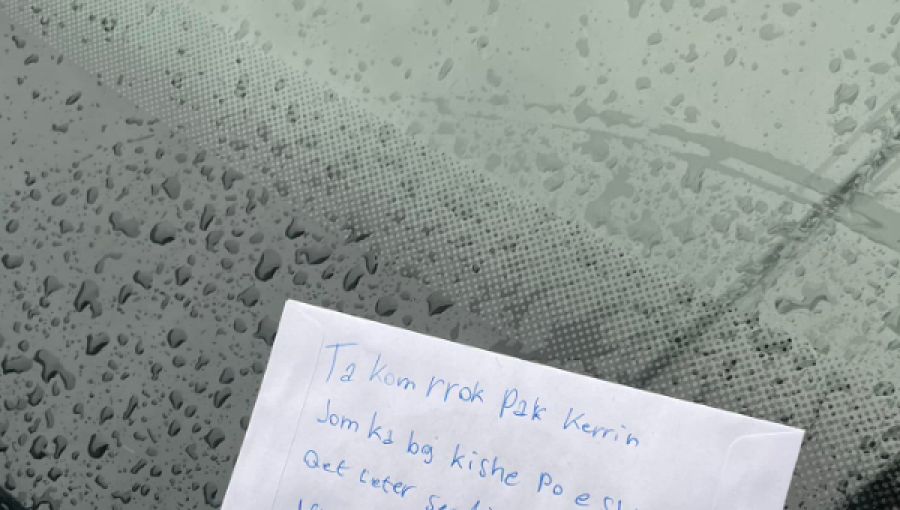 Ta kom rrok pak Kerrin
Jom ka boj kishe po e
Qet leter